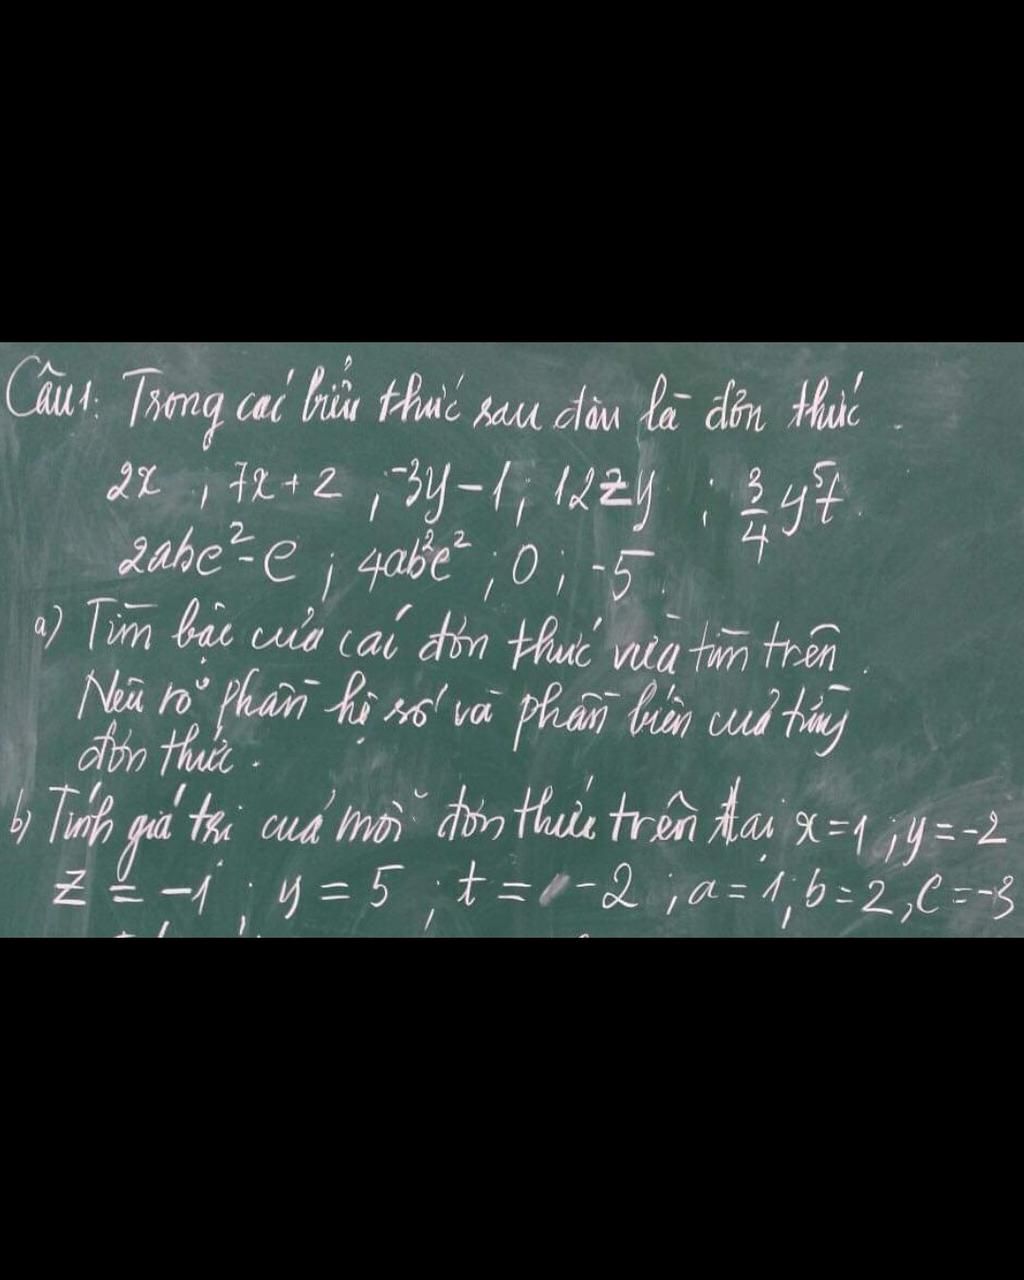 Câu 1: Trong các biểu thức sau đâu là đơn thức.
2x ; 7x + 2 ; -3y - 1 ; 12zy ; 3/4 y⁵t.
2abc² - c ; 4ab²c² ; 0 ; -5.
a) Tìm bậc của các đơn thức vừa tìm trên.
Nêu rõ phần hệ số và phần biến của từng
đơn thức.
b) Tính giá trị của mỗi đơn thức trên tại x = 1 ; y = -2
z = -1 ; y = 5 ; t = -2 ; a = 1 ; b = 2 , c = -3